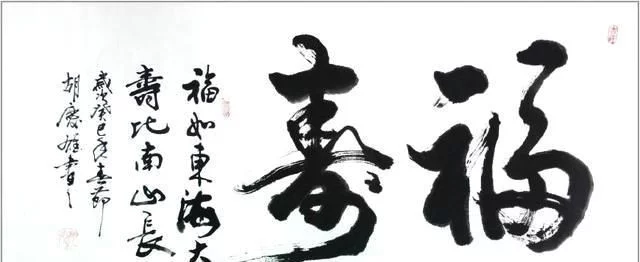 福壽
福如東海大
壽比南山長
歲次癸巳年春節
胡慶雄書